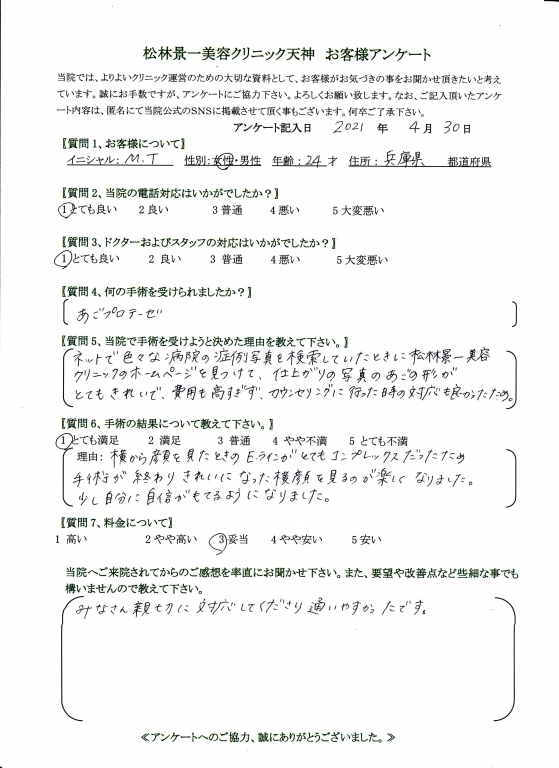 松林景一美容クリニック天神 お客様アンケート
当院では、よりよいクリニック運営のための大切な資料として、お客様がお気づきの事をお聞かせ頂きたいと考え
ています。誠にお手数ですが、アンケートにご協力下さい。よろしくお願い致します。なお、ご記入頂いたアンケ
ート内容は、匿名にて当院公式のSNSに掲載させて頂く事もございます。何卒ご了承下さい。
アンケート記入日 2021 年 4月 30日
〖質問1、お客様について〗
イニシャル: M.T 性別:女性・男性 年齢:24 才 住所: 兵庫県 都道府県
〖質問2、当院の電話対応はいかがでしたか?〗
1とても良い 2 良い 3 普通 4 悪い 5 大変悪い
〖質問3、ドクターおよびスタッフの対応はいかがでしたか?〗
1とても良い 2 良い 3 普通 4 悪い 5 大変悪い
〖質問4、何の手術を受けられましたか?〗
あごプロテーゼ
〖質問5、当院で手術を受けようと決めた理由を教えて下さい。〗
ネットで色々な病院の症例写真を検索していたときに松林景一美容
クリニックのホームページを見つけて、仕上がりの写真のあごの形が
とてもきれいで、費用も高すぎず、カウンセリングに行った時の対応も良かったため。
〖質問6、手術の結果について教えて下さい。〗
1とても満足 2 満足 3 普通 4 やや不満 5 とても不満
理由: 横から顔を見たときのEラインがとてもコンプレックスだったため
手術が終わりきれいになった横顔を見るのが楽しくなりました。
少し自分に自信がもてるようになりました。
〖質問7、料金について〗
1 高い 2 やや高い 3妥当 4 やや安い 5 安い
当院へご来院されてからのご感想を率直にお聞かせ下さい。また、要望や改善点など些細な事でも
構いませんので教えて下さい。
みなさん親切に対応してくださり通いやすかったです。
≪アンケートへのご協力、誠にありがとうございました。≫